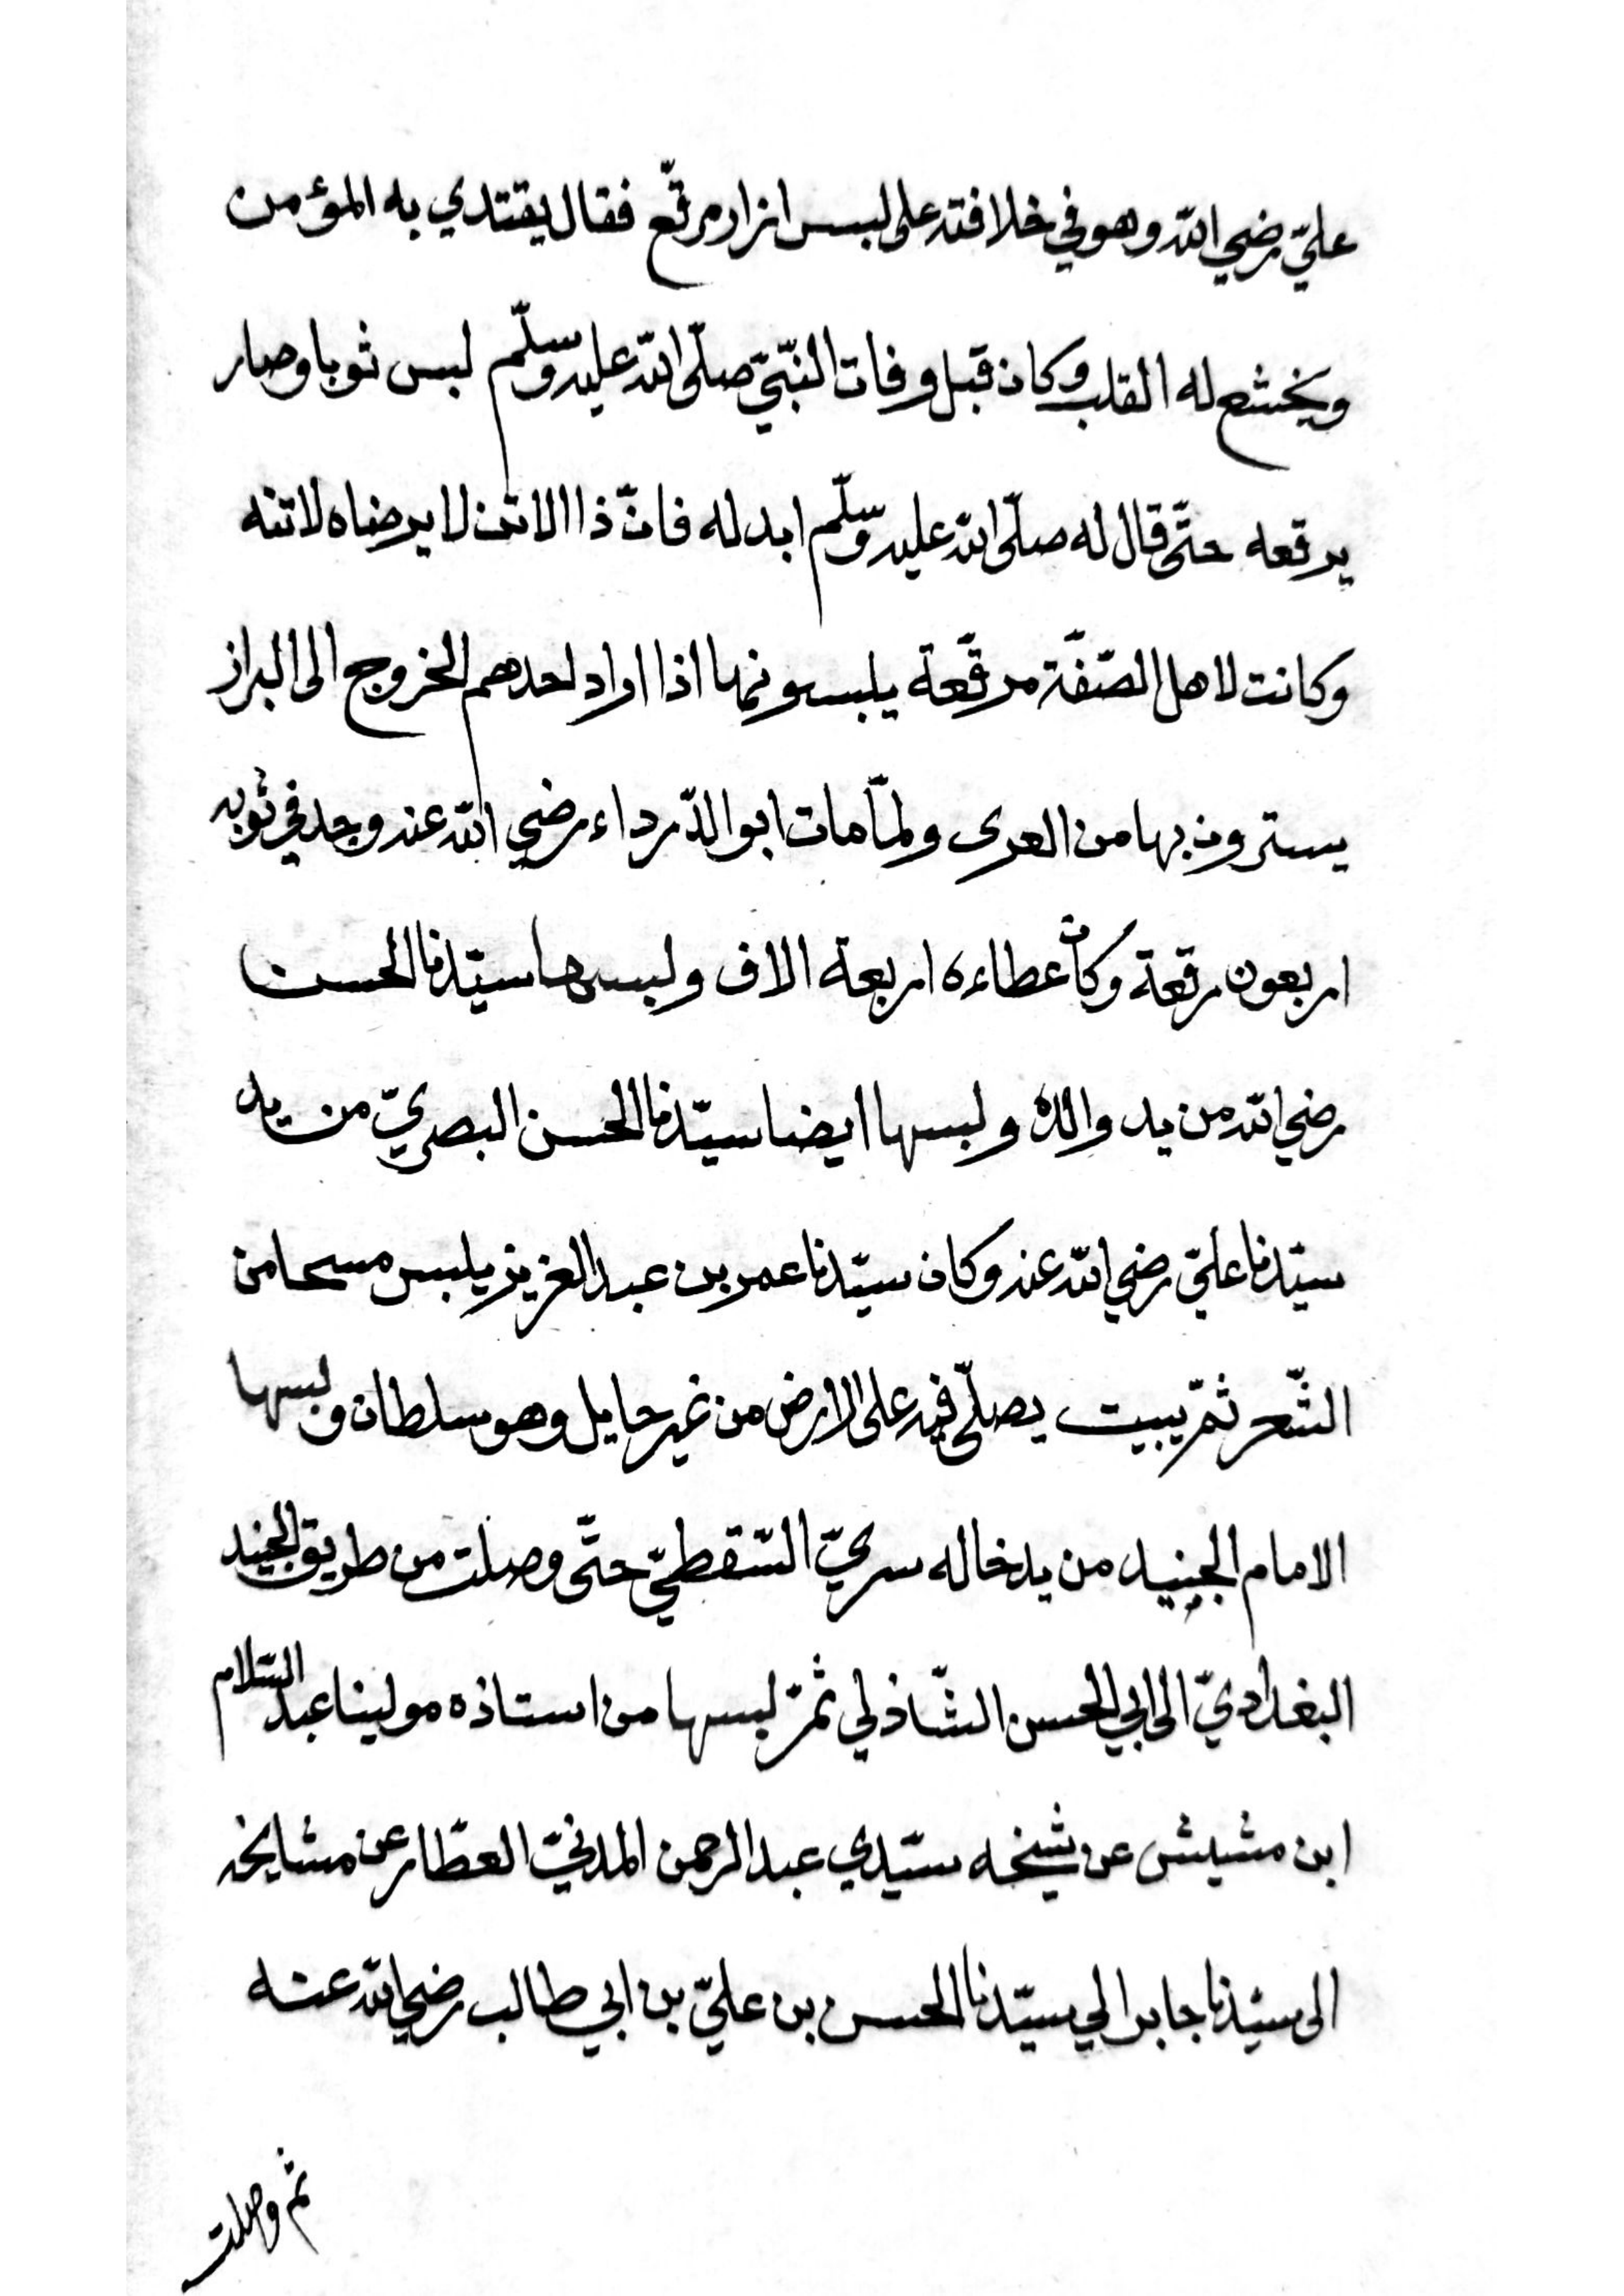 عليّ رضي الله وهو في خلافته على لبس ازار مرقّع فقال يقتدي به المؤمن
ويخشع له القلب وكان قبل وفات النّبيّ صلّى الله عليه وسلّم لبس ثوبا وصار
يرقعه حتّى قال له صلّى الله عليه وسلّم ابدله فانّ ذا الاتن لا يرضاه لاتنه
وكانت لاهل الصّفّة مرقّعة يلبسونها اذا اراد احدهم الخروج الى البراز
يسترون بها من العرى ولمّا مات ابو الدّرداء رضي الله عنه وجد في ثوبه
اربعون رقعة وكان عطاءه اربعة الاف ولبسها سيّدنا الحسن
رضي الله من يد والده ولبسها ايضا سيّدنا الحسن البصريّ من يد
سيّدنا عليّ رضي الله عنه وكان سيّدنا عمر بن عبد العزيز يلبس مسحا من
الشّعر ثمّ يبيت يصلّي فيه على الارض من غير حايل وهو سلطان ولبسها
الامام الجنيد من يد خاله سريّ السّقطيّ حتّى وصلت من طريق الجنيد
البغداديّ الى ابي الحسن الشّاذلي ثمّ لبسها من استاذه مولينا عبد السّلام
ابن مشيش عن شيخه سيّدي عبد الرحمن المدنيّ العطّار عن مشايخه
الى سيّدنا جابر الي سيّدنا الحسن بن عليّ بن ابي طالب رضي الله عنه
ثم وصلت